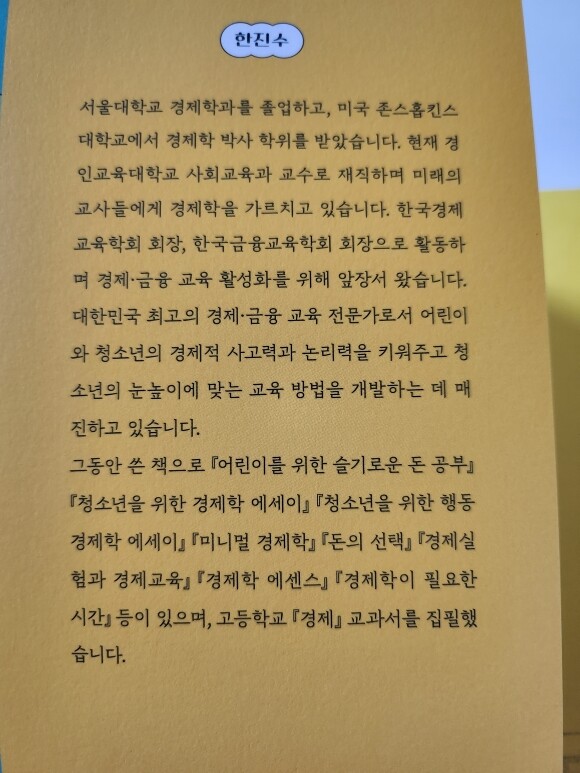 한진수
서울대학교 경제학과를 졸업하고, 미국 존스홉킨스
대학교에서 경제학 박사 학위를 받았습니다. 현재 경
인교육대학교 사회교육과 교수로 재직하며 미래의
교사들에게 경제학을 가르치고 있습니다. 한국경제
교육학회 회장, 한국금융교육학회 회장으로 활동하
며 경제·금융 교육 활성화를 위해 앞장서 왔습니다.
대한민국 최고의 경제·금융 교육 전문가로서 어린이
와 청소년의 경제적 사고력과 논리력을 키워주고 청
소년의 눈높이에 맞는 교육 방법을 개발하는 데 매
진하고 있습니다.
그동안 쓴 책으로 『어린이를 위한 슬기로운 돈 공부』
『청소년을 위한 경제학 에세이』 『청소년을 위한 행동
경제학 에세이』 『미니멀 경제학』 『돈의 선택』 『경제실
험과 경제교육』 『경제학 에센스』 『경제학이 필요한
시간』 등이 있으며, 고등학교 『경제』 교과서를 집필했
습니다.